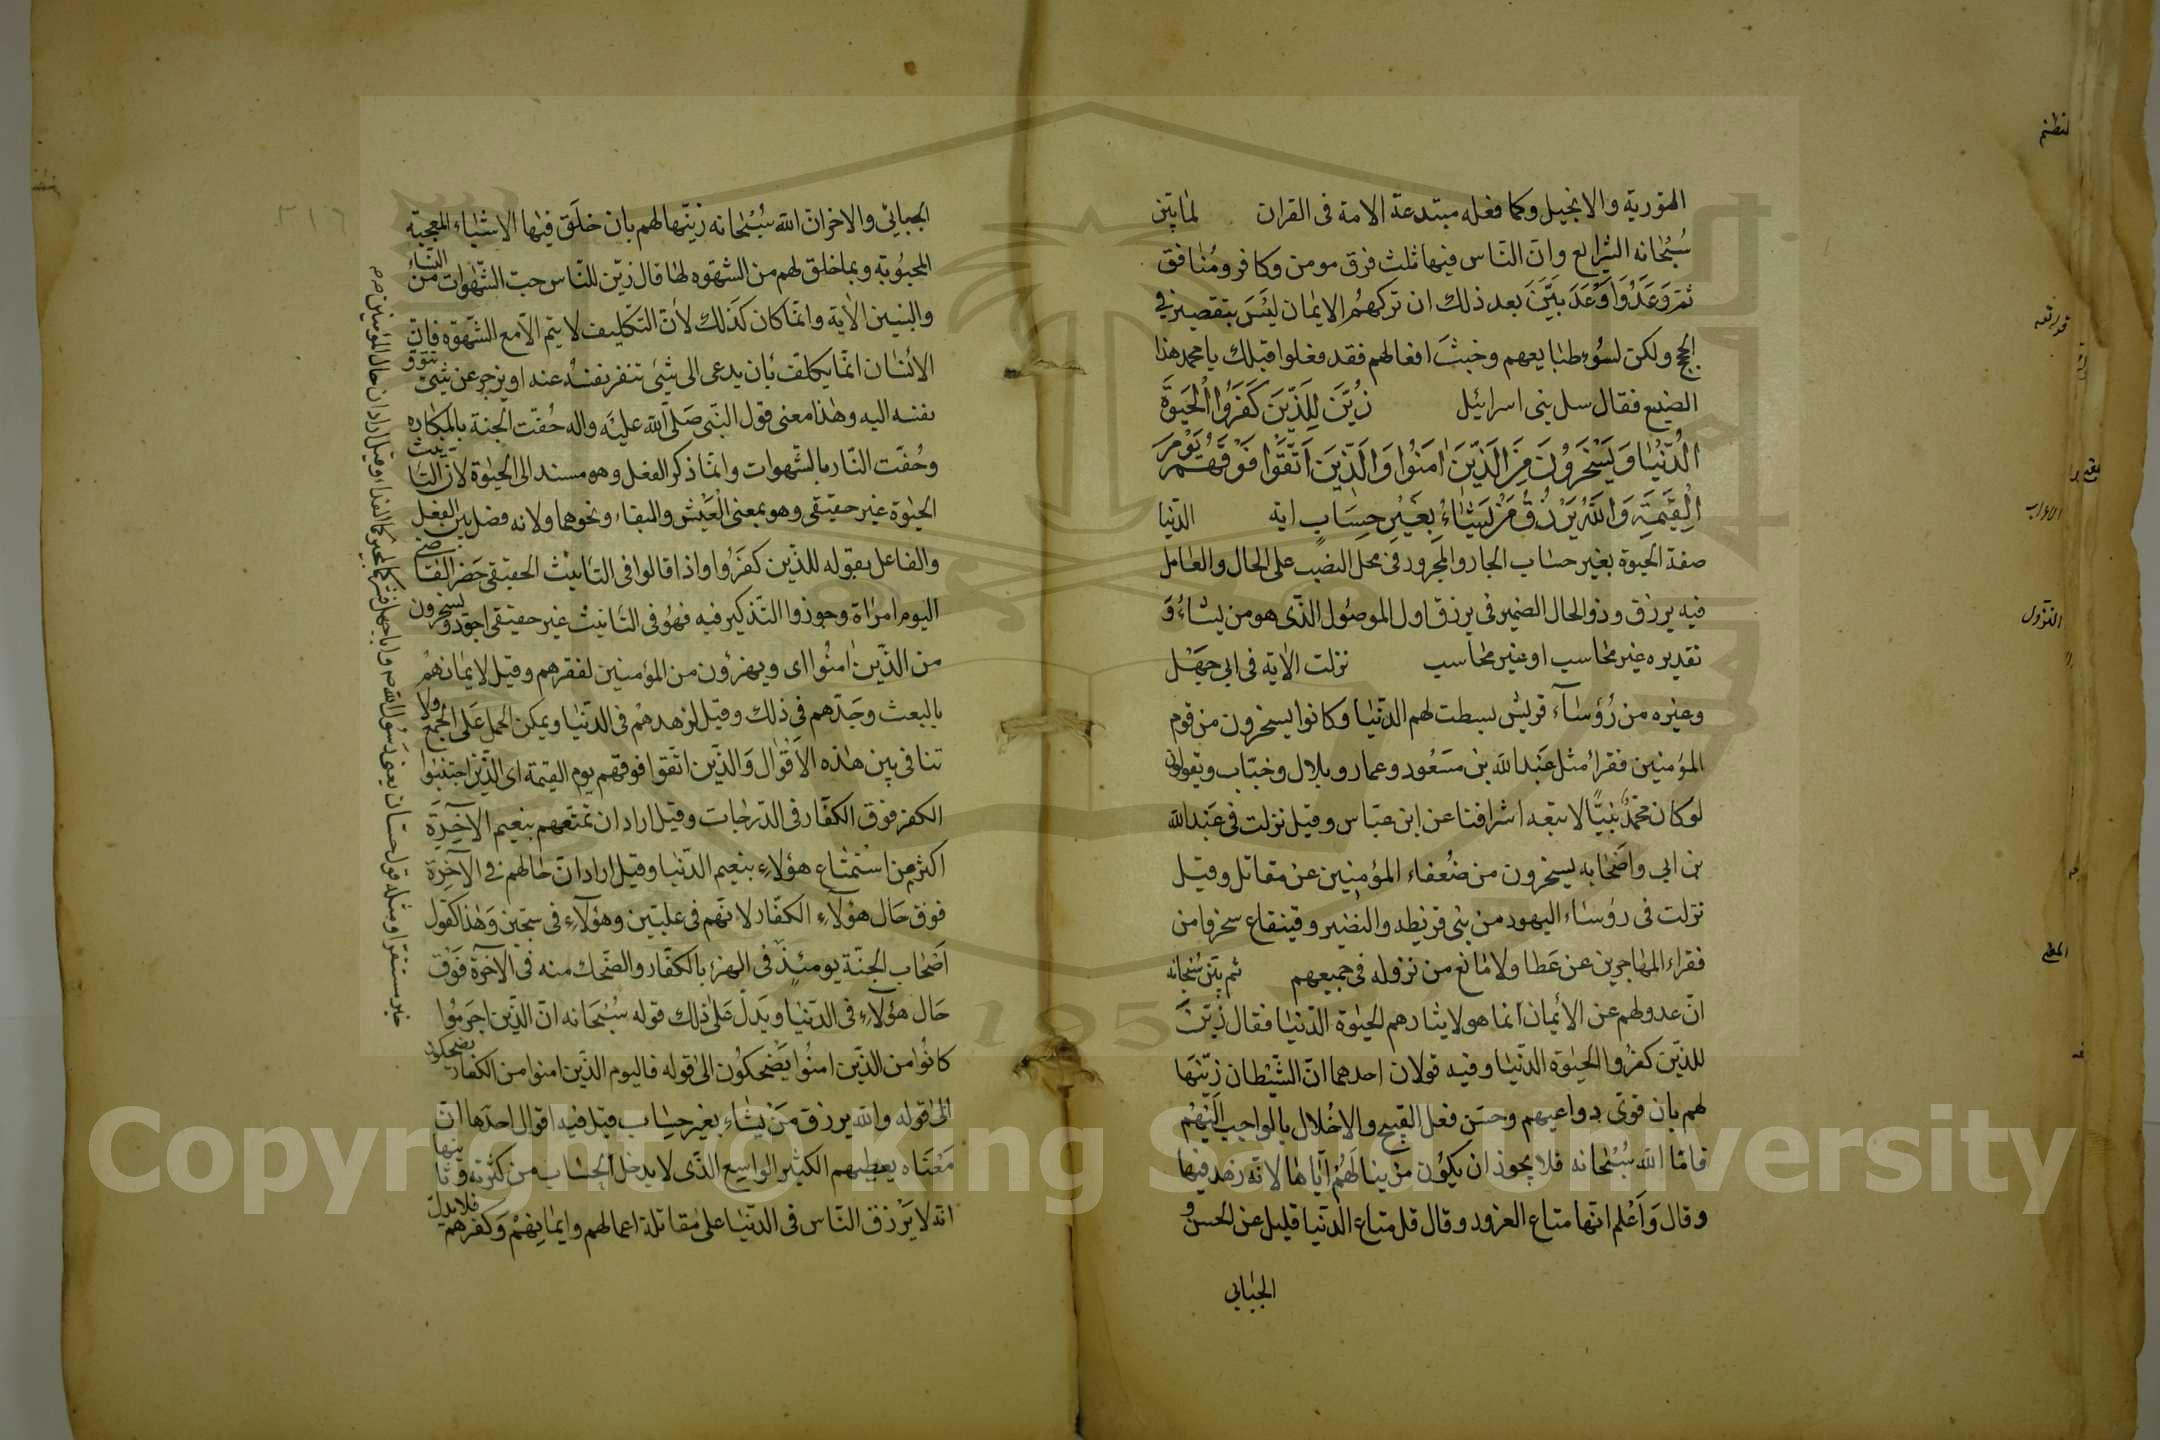 التورية والانجيل وكما فعله مبتدعة الامة فى القران لما بيّن
سُبْحانه الشرايع وانّ النّاس فيها ثلث فرق مومن وكافر ومُنافق
ثمّ وَعَدَ وَاَوْعَدَ بيَّنَ بعد ذلك ان تركهمُ الايمان ليْسَ بتقصير فى
الحجج ولكن لسُوء طبايعهم وخبثَ افعالهم فقد فعلوا قبلك يا محمد هذا
الصنيع فقال سل بنى اسرائيل زُيِّنَ لِلَّذِينَ كَفَرُوا الْحَيٰوةُ
الدُّنْيٰا وَيَسْخَرُونَ مِنَ الَّذِينَ اٰمَنُوا وَالَّذِينَ اتَّقَوْا فَوْقَهُمْ يَوْمَ
الْقِيٰمَةِ وَاللّٰهُ يَرْزُقُ مَنْ يَشٰاءُ بِغَيْرِ حِسٰابٍ ايه الدنيا
صفة الحيوة بغير حساب الجار والمجرور فى محل النصب على الحال والعامل
فيه يرزق وذو الحال الضمير فى يرزق او الموصُول الّذى هو من يشاءُ وَ
تقديره غير محاسب او غير محاسب نزلت الاية فى ابى جَهْل
وغيره من رُؤساۤء قريش بسطت لهم الدّنيا وكانوا يسخرون من قوم
المؤمنين فقراءُ مثل عَبْد الله بن مسَعُود وعمار وبلال وخبّاب ويقولون
لو كان محمّدٌ نبيًّا لاتبعه اشرافنا عن ابن عبّاس وقيل نزلت فى عَبْد الله
بن ابى واصَحٰابه يسخرون من ضُعفاء المؤمنين عن مقاتل وقيل
نزلت فى رؤساء اليهود من بنى قريظه والنضير وقينقاع سخروا من
فقراء المهاجرين عن عَطا ولا مٰانع من نزوله فى جميعهم ثم بيّن سُبْحانه
انّ عدولهم عن الأيمان انما هو لايثارهم الحيٰوة الدّنيٰا فقال زُيّنَ
للذّين كفرُوا الحَيٰوة الدّنيٰا وفيه قولان احدهما انّ الشّيْطان زيّنها
لهم بان قوّى دواعيهم وحسّن فعل القبيح والاخْلال بالواجب اليْهم
فامّا اللّه سُبْحٰانه فلا يجوز ان يكوُن مزينا لهُمْ ايّاها لانّه زهد فيها
وقال وَاَعْلم انّها متاع الغرور وقال قل متاع الدّنيا قليل عن الحسن و
الجبٰابى
الجبائي والاخر انّ اللّه سُبْحانه زيّنها لهم بان خلَق فيها الاشيٰاء المعجبة
المحبُوبة وبما خلق لهم من الشهوه لها قال زيّن للنّاس حبّ الشّهوات من النّساء
والبنين الاٰية وانّما كان كَذلك لأنّ التّكليف لا يتم الاّ مع الشّهوة فانّ
الأنسان انّما يكلّف بأن يدعى الى شئ تنفر نفسهُ عنه او يزجر عن شئ تتوق
نفسه اليه وهذا معنى قول النّبى صَلّى اللّه عليْه واله حُفّت الجنة بالمكاره
وحُفّت النّار بالشّهوات وانّما ذكر الفعل وهو مسند الى الحيٰوة لانّ التّأنيث
الحيٰوة غير حقيقى وهو بمعنى العَيْش والبقاء ونحوهما ولانه فصل بين الفعل
والفاعل بقوله للذّين كفَرُوا واذا قالوا فى التانيْث الحقيقى حَضر القاضى
اليوم امراة وجوزوا التّذكير فيه فهُو فى التانيْث غير حقيقى اجود ويسخرون
من الذّين اٰمنُوا اى ويهزؤن من المؤمنين لفقرهم وقيل لايمٰانهمْ
بالبعث وجَدّهم فى ذلك وقيل لزهدهمْ فى الدّنيا ويمكن الحمل عَلى الجَمع ولا
تنافى بين هذه الاَقوٰال وَالذّين اتّقوا فوقهم يوم القيمة اى الذّين اجتنبُوا
الكفر فوق الكفّار فى الدّرجات وقيل اراد ان تمتّعهم بنعيم الآخِرَة
اكثر من اسْتمٰتاع هؤلاءِ بنعيم الدّنيٰا وقيل اراد انّ حٰالهم فى الآخِرَة
فوق حَال هؤلآءِ الكفّار لانّهم فى عليّين وهؤلآءِ فى سجّين وَهٰذا كقول
اَصْحٰاب الجنّة يومئذٍ فى الهزء بالكفّار والضّحك منه فى الآخرة فَوْق
حَال هؤلآءِ فى الدّنيٰا ويَدلّ عَلٰى ذلك قوله سُبْحَانه انّ الذّين اجرمُوا
كانُوا من الذّين امنُوا يَضْحكوُن الى قوله فاليوم الذّين امنوا من الكفار يضحكون
الى قوله والله يرزق مَنْ يشٰاء بغير حِسٰاب قيل فيه اقوال احدها انّ
مَعْناه يعطيهم الكثير الواسِع الذّى لا يدخل الحسَاب من كثرته وثانيها
انّه لا يَرْزق النّاس فى الدّنيٰا على مقابلة اعمالهم وايمٰانهمْ وَكفرهم فلا يدلّ
النظم
الاعراب
النزول
المعنى